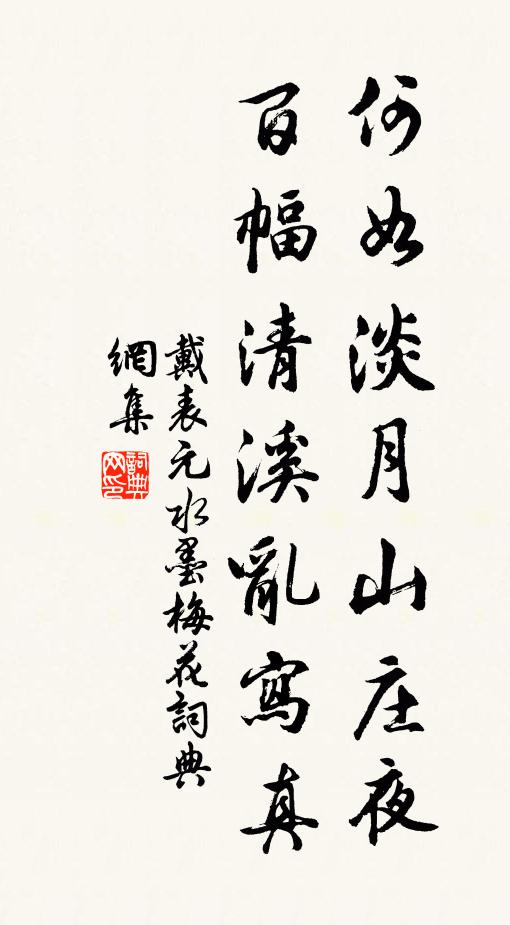 何如淡月山庄夜
百幅清溪亂寫真
戴表元水墨梅花詞典
網集
詞典
网印